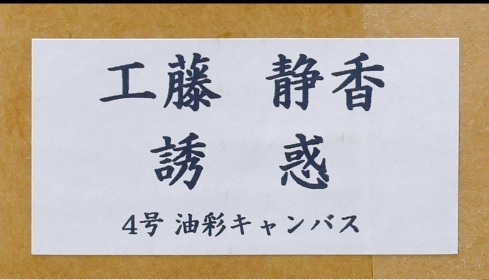 工藤 静香
誘 惑
4号 油彩キャンバス